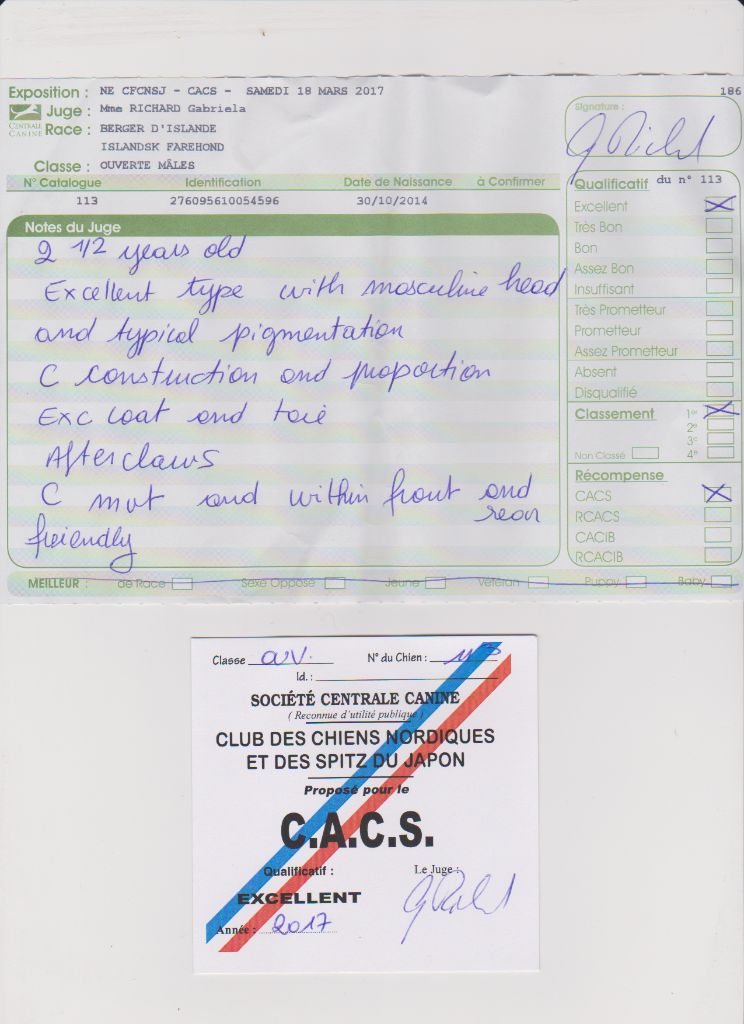 Exposition : NE CFCNSJ - CACS - SAMEDI 18 MARS 2017
186
CENTRALE CANINE
Juge : Mme RICHARD Gabriela
Race : BERGER D'ISLANDE
ISLANDSK FAREHOND
Classe : OUVERTE MÂLES
Signature :
G Richard
N° Catalogue Identification Date de Naissance à Confirmer
113 276095610054596 30/10/2014
Notes du Juge
2 1/2 years old
Excellent type with masculine head
and typical pigmentation
C construction and proportion
Exc coat and
Afterclaws
C and within front and
rear
freiendly
Qualificatif du n° 113
Excellent
Très Bon
Bon
Assez Bon
Insuffisant
Très Prometteur
Prometteur
Assez Prometteur
Absent
Disqualifié
Classement 1er
2e
3e
Non Classé 4e
Récompense
CACS
RCACS
CACIB
RCACIB
MEILLEUR : de Race Sexe Opposé Jeune Vétéran Puppy Baby
Classe ouv. N° du Chien : 113
Id. :
SOCIÉTÉ CENTRALE CANINE
( Reconnue d'utilité publique )
CLUB DES CHIENS NORDIQUES
ET DES SPITZ DU JAPON
Proposé pour le
C.A.C.S.
Qualificatif : Le Juge :
EXCELLENT
G Richard
Année : 2017